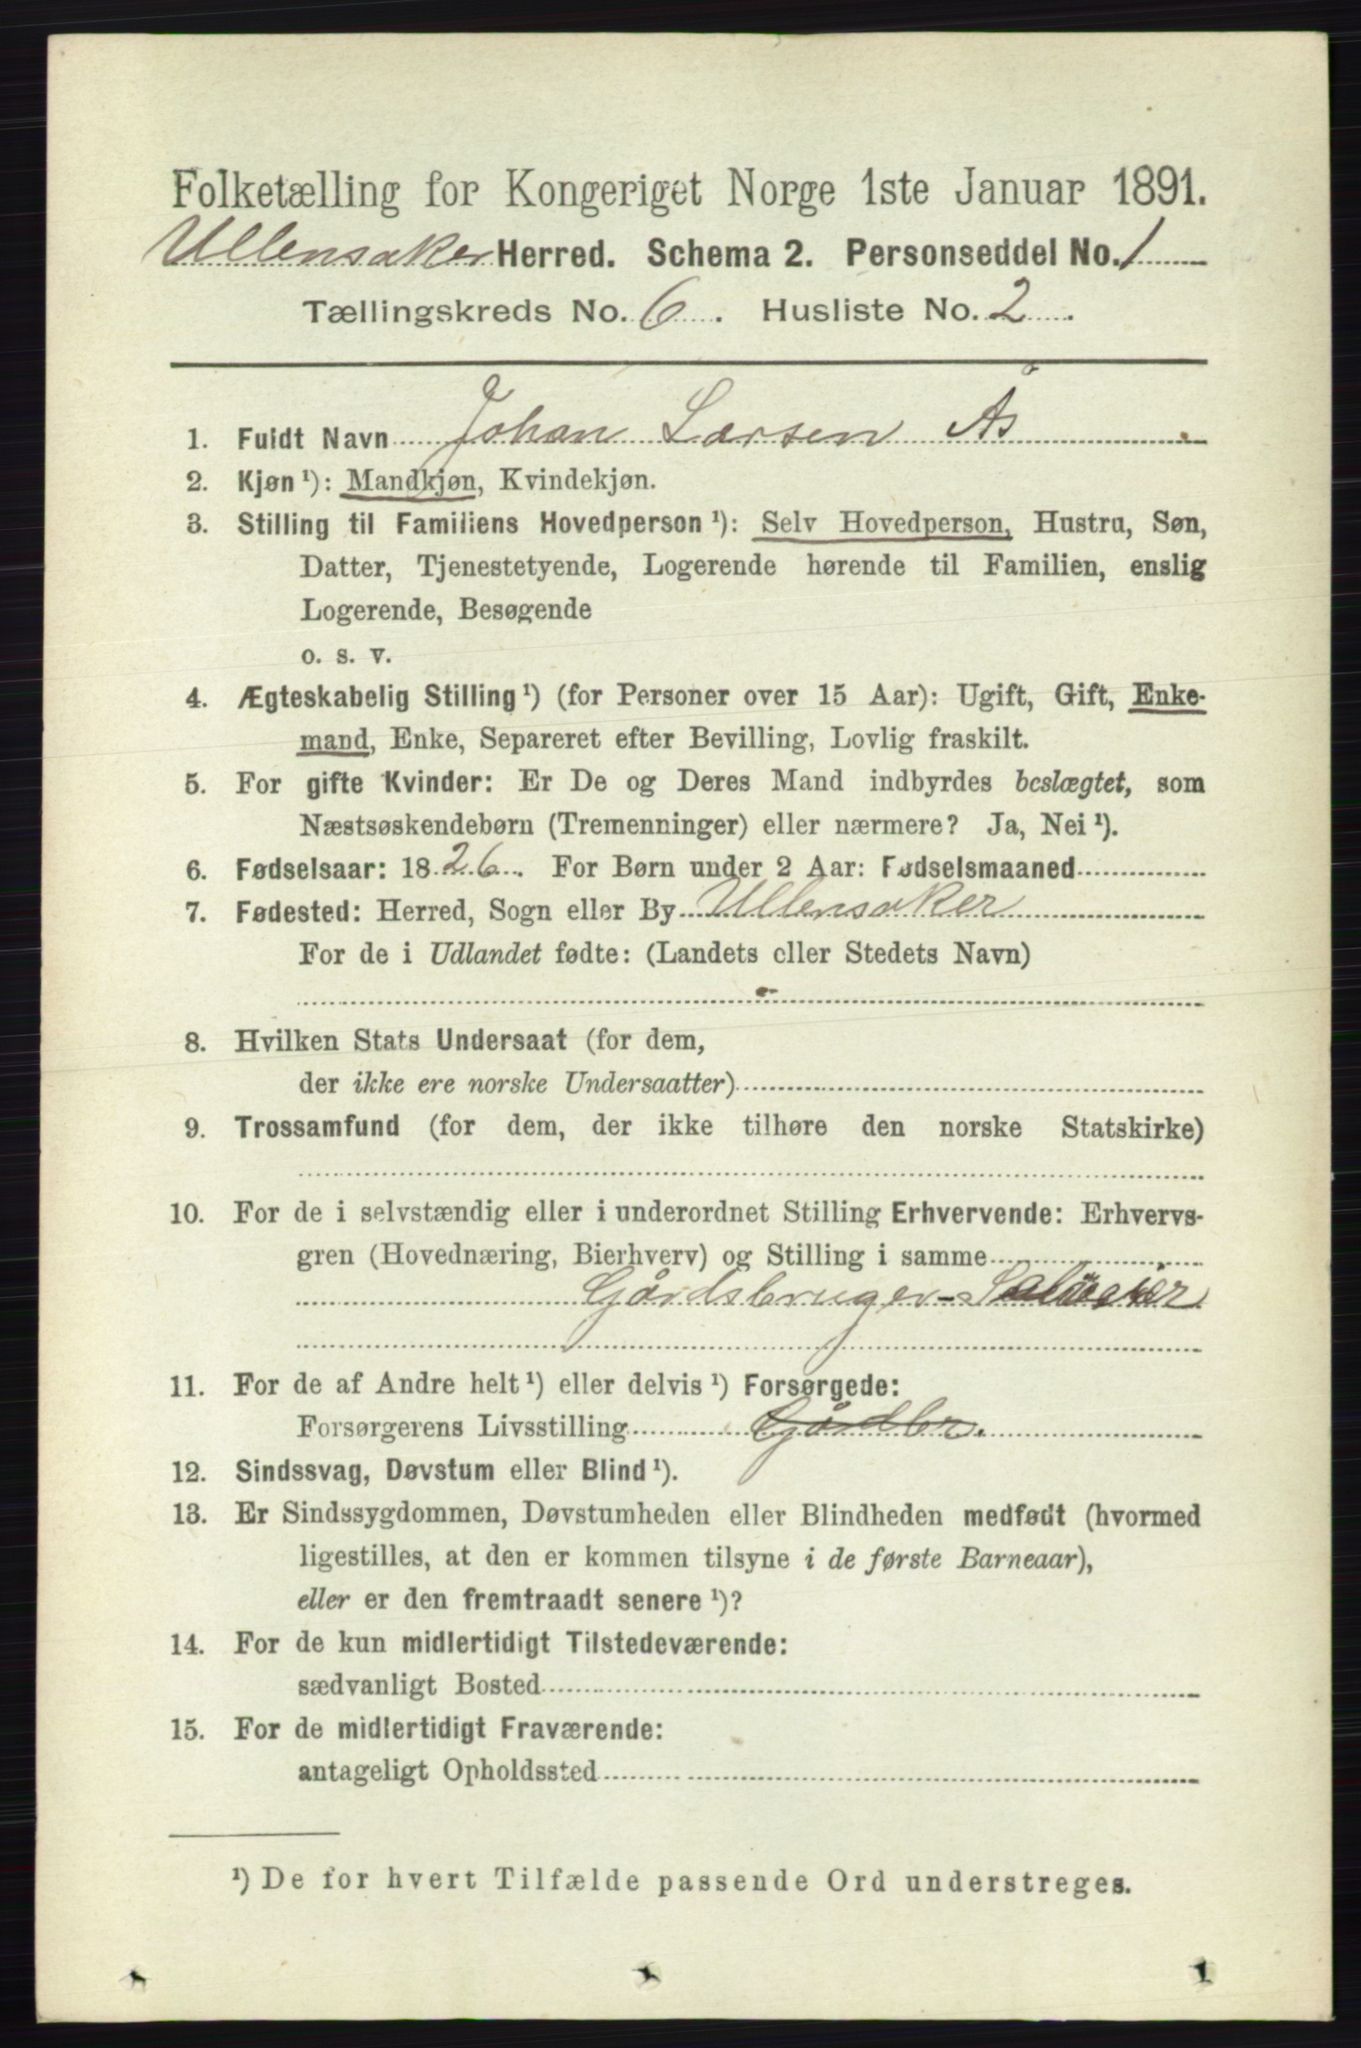 Folketælling for Kongeriget Norge 1ste Januar 1891.
Ullensaker Herred. Schema 2. Personseddel No. 1
Tællingskreds No. 6. Husliste No. 2.
1. Fuldt Navn Johan Larsen Ås
2. Kjøn ¹): Mandkjøn, Kvindekjøn.
3. Stilling til Familiens Hovedperson ¹): Selv Hovedperson, Hustru, Søn,
Datter, Tjenestetyende, Logerende hørende til Familien, enslig
Logerende, Besøgende
o. s. v.
4. Ægteskabelig Stilling ¹) (for Personer over 15 Aar): Ugift, Gift, Enke-
mand, Enke, Separeret efter Bevilling, Lovlig fraskilt.
5. For gifte Kvinder: Er De og Deres Mand indbyrdes beslægtet, som
Næstsøskendebørn (Tremenninger) eller nærmere? Ja, Nei ¹).
6. Fødselsaar: 1826. For Børn under 2 Aar: Fødselsmaaned
7. Fødested: Herred, Sogn eller By Ullensaker
For de i Udlandet fødte: (Landets eller Stedets Navn)
8. Hvilken Stats Undersaat (for dem,
der ikke ere norske Undersaatter)
9. Trossamfund (for dem, der ikke tilhøre den norske Statskirke)
10. For de i selvstændig eller i underordnet Stilling Erhvervende: Erhvervs-
gren (Hovednæring, Bierhverv) og Stilling i samme
Gårdsbruger-
11. For de af Andre helt ¹) eller delvis ¹) Forsørgede:
Forsørgerens Livsstilling Gårdbr.
12. Sindssvag, Døvstum eller Blind ¹).
13. Er Sindssygdommen, Døvstumheden eller Blindheden medfødt (hvormed
ligestilles, at den er kommen tilsyne i de første Barneaar),
eller er den fremtraadt senere ¹)?
14. For de kun midlertidigt Tilstedeværende:
sædvanligt Bosted
15. For de midlertidigt Fraværende:
antageligt Opholdssted
¹) De for hvert Tilfælde passende Ord understreges.